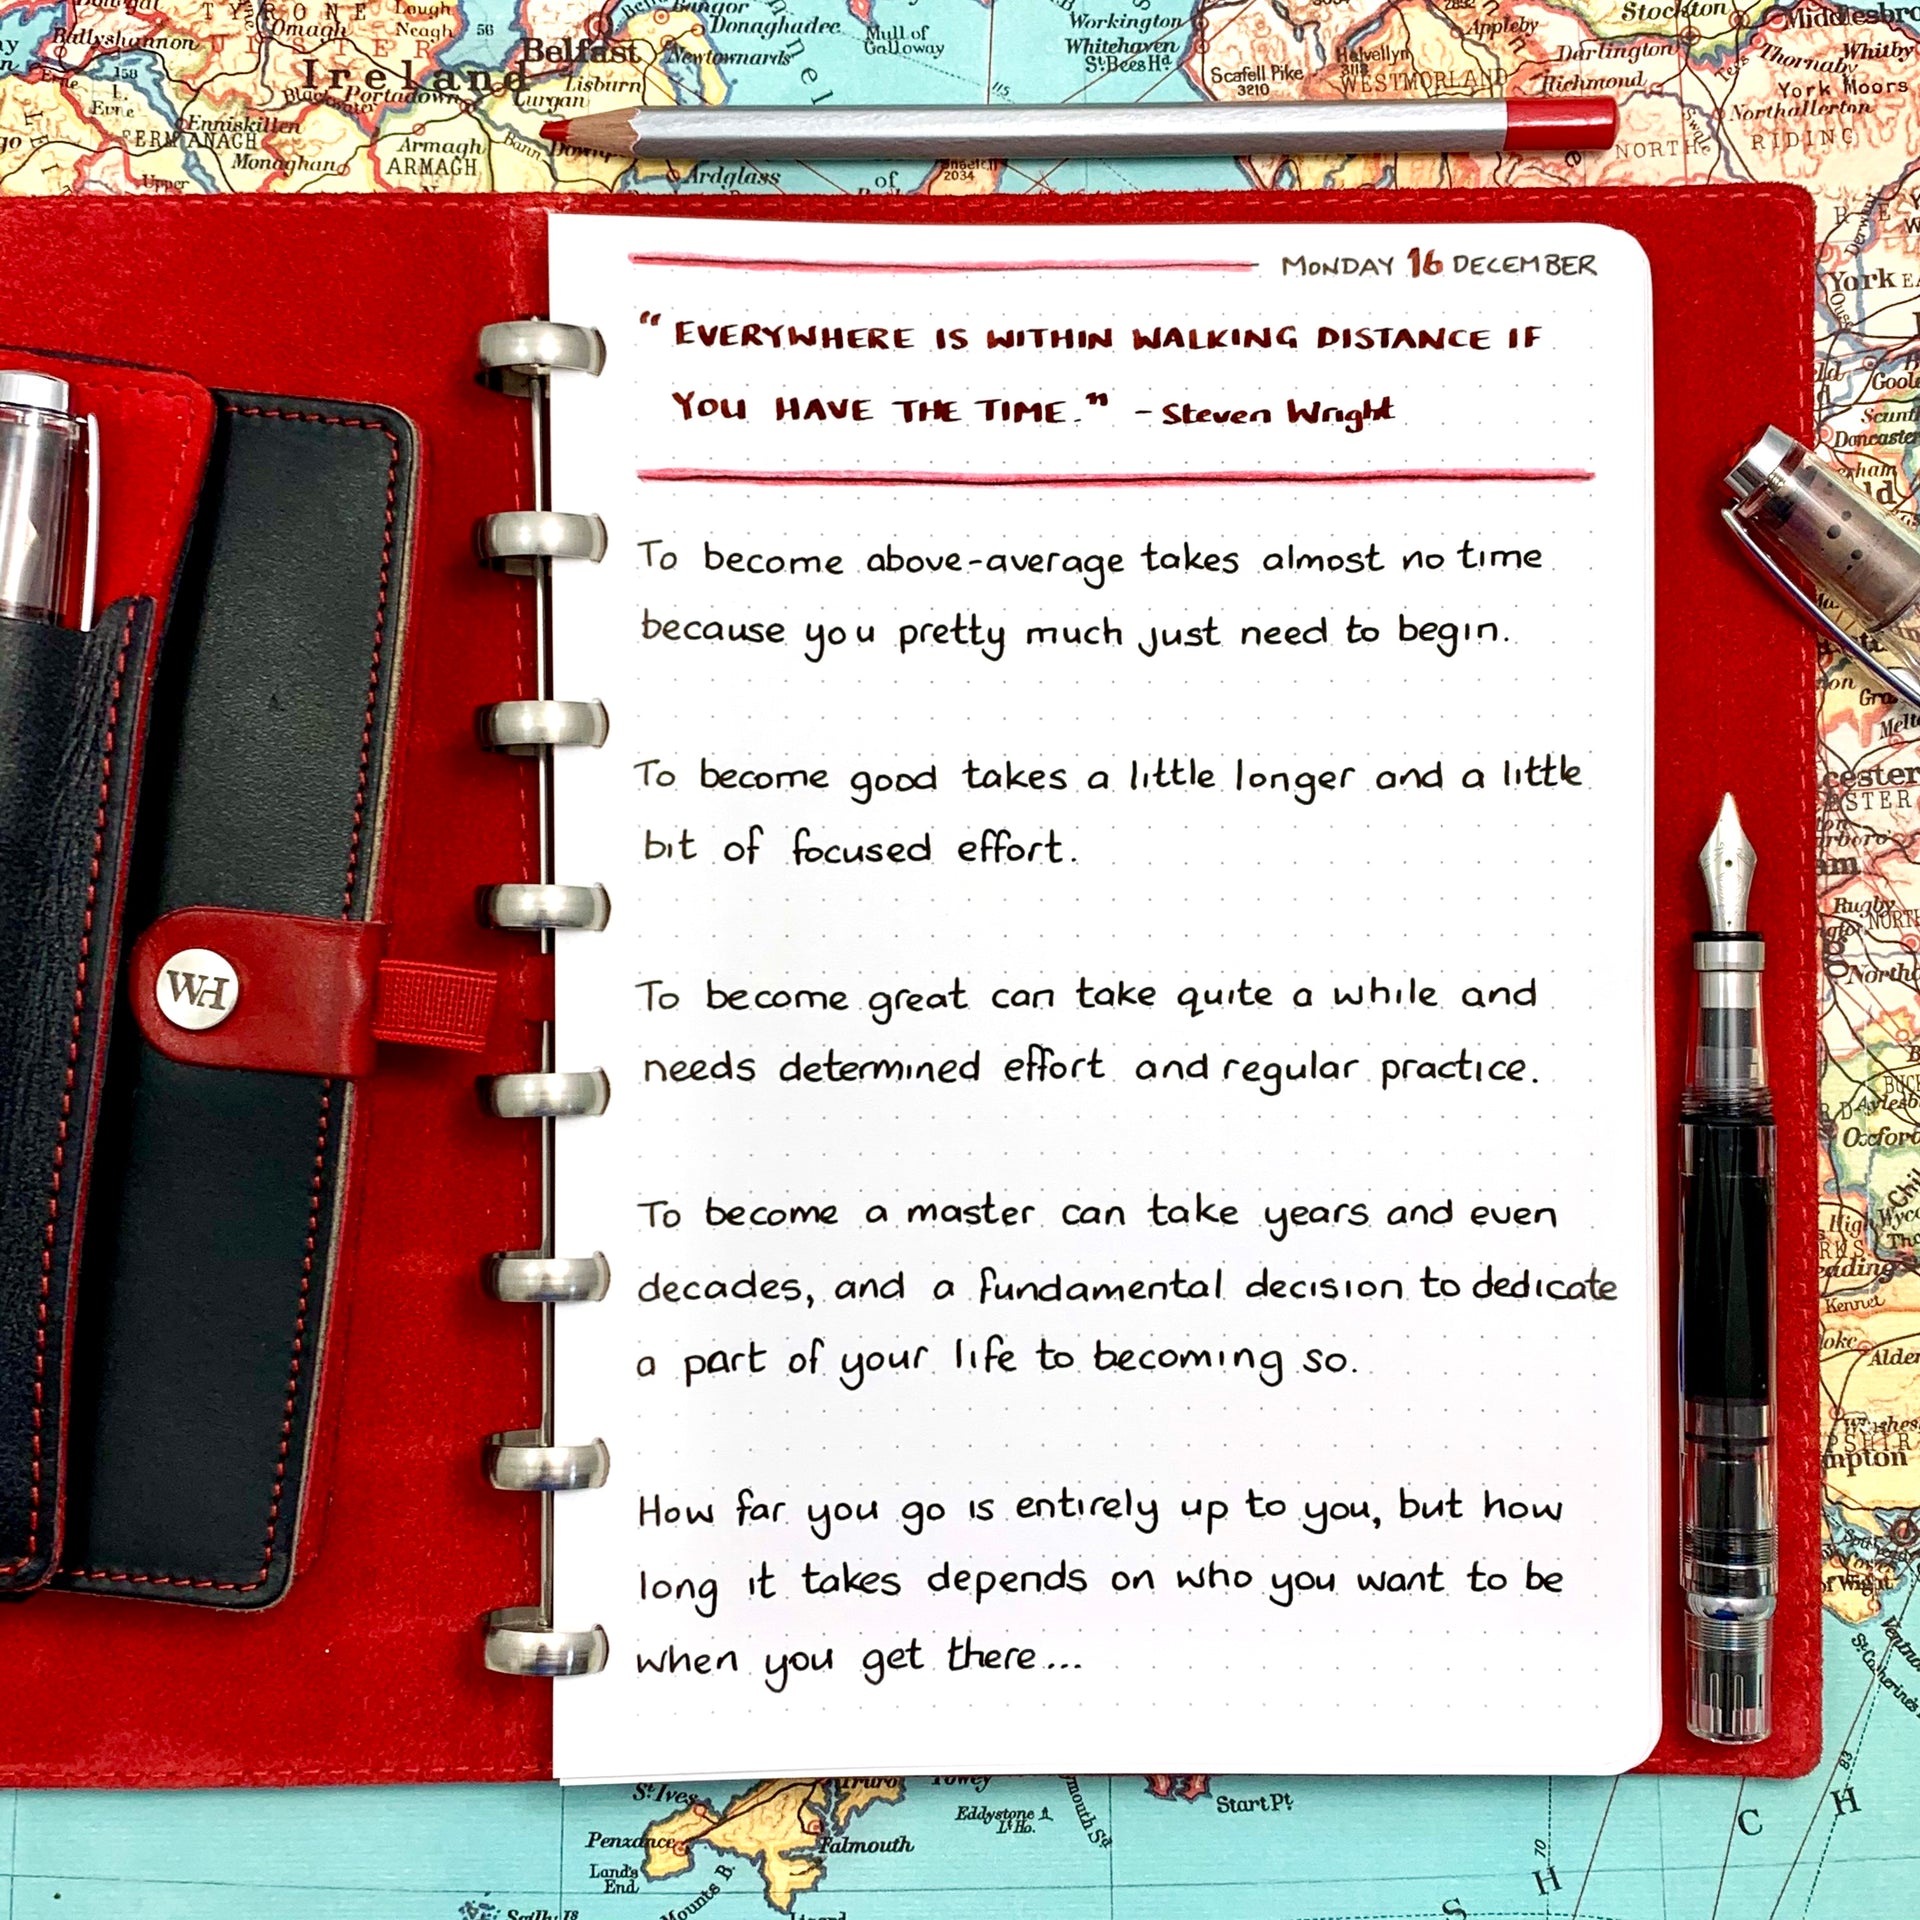 MONDAY 16 DECEMBER
"EVERYWHERE IS WITHIN WALKING DISTANCE IF
YOU HAVE THE TIME." - Steven Wright
To become above-average takes almost no time
because you pretty much just need to begin.
To become good takes a little longer and a little
bit of focused effort.
To become great can take quite a while and
needs determined effort and regular practice.
To become a master can take years and even
decades, and a fundamental decision to dedicate
a part of your life to becoming so.
How far you go is entirely up to you, but how
long it takes depends on who you want to be
when you get there...
WH
Bangor
Donaghadee
Mull of
Galloway
Workington
Whitehaven
St Bees Hd
Appleby
Stockton
Ballyshannon
Omagh
Lough
Neagh
56
Belfast
Newtownards
Ireland
Lisburn
Lurgan
Portadown
Blackwater
158
L.
Erne
Enniskillen
FERMANAGH
Monaghan
Armagh
ARMAGH
Upper
Bann
Ardglass
of
2034
115
Scafell Pike
3210
Helvellyn
WESTMORLAND
Darlington
Richmond
Thornaby
Whitby
York Moors
Northallerton
NORTH
RIDING
York
Derwent
Doncaster
Rugby
St Ives
Penzance
Land's
End
Mounts B.
Truro
Falmouth
Eddystone
Lt Ho.
Start Pt
Kennet
70
83
S
H
C
H